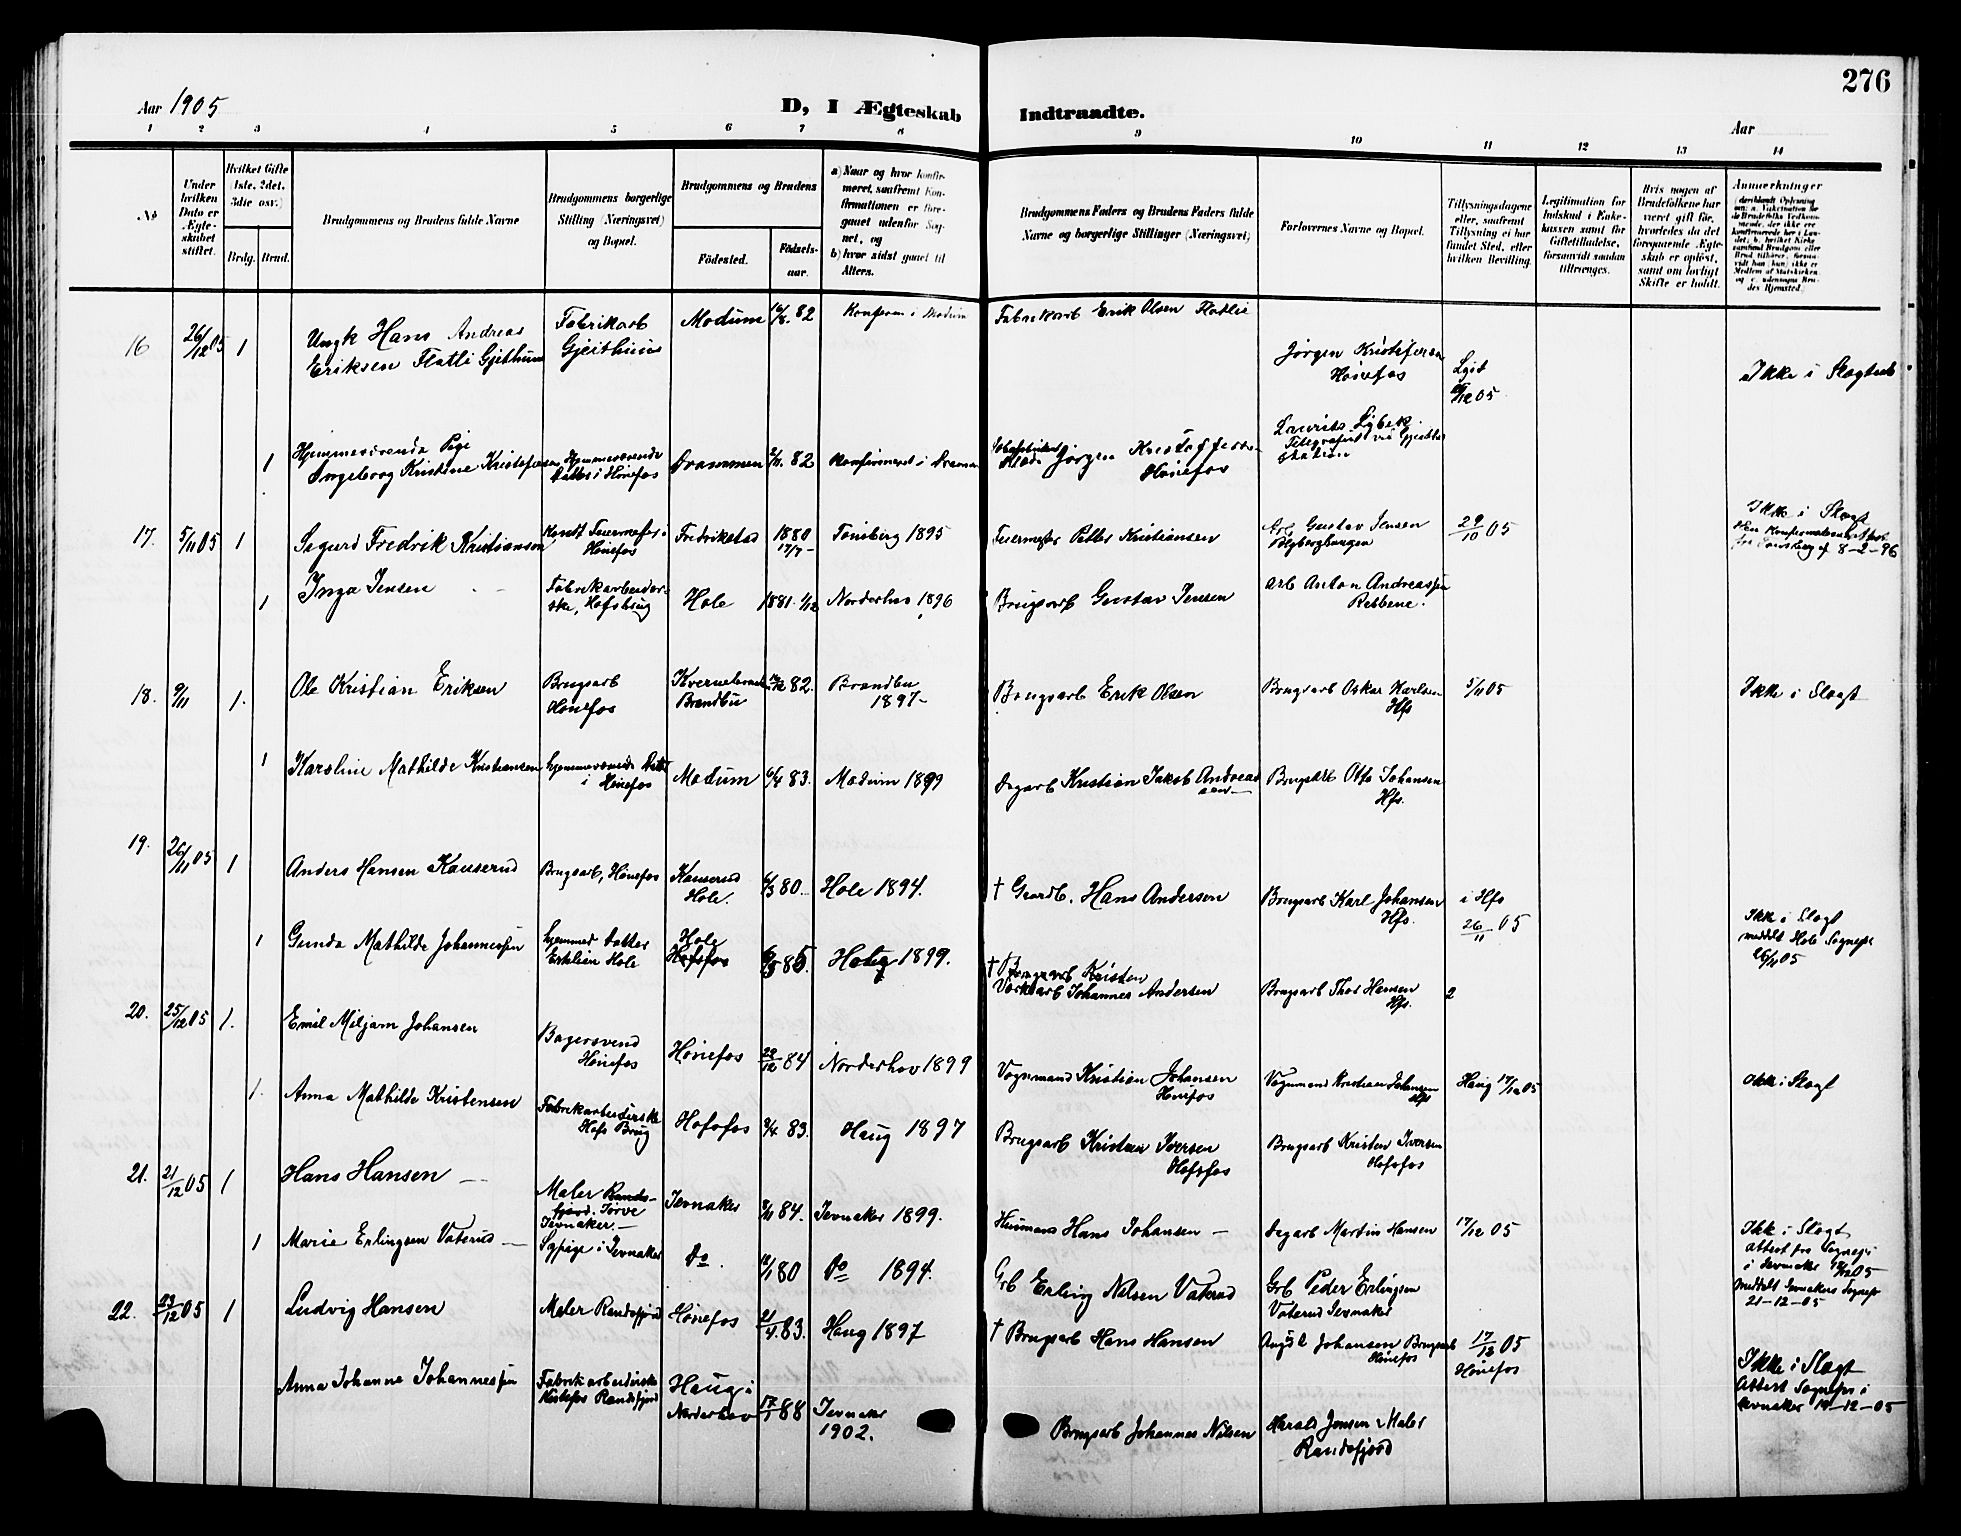 276
Aar 1905
D, I Ægteskab Indtraadte.
Aar
1 2 3 4 5 6 7 8 9 10 11 12 13 14
No
Under hvilken Dato er Ægteskabet stiftet.
Hvilket Gifte (1ste, 2det, 3die osv.)
Brdg. Brud.
Brudgommens og Brudens fulde Navne
Brudgommens borgerlige Stilling (Næringsvei) og Bopæl.
Brudgommens og Brudens
Fødested.
Fødselsaar.
a) Naar og hvor konfirmeret, saafremt Konfirmationen er foregaaet udenfor Sognet, og
b) hvor sidst gaaet til Alters.
Brudgommens Faders og Brudens Faders fulde Navne og borgerlige Stillinger (Næringsvei)
Forlovernes Navne og Bopæl.
Tillysningsdagene eller, saafremt Tillysning ei har fundet Sted, efter hvilken Bevilling.
Legitimation for Indskud i Enkekassen samt for Giftetilladelse, forsaavidt saadan tiltrænges.
Hvis nogen af Brudefolkene har været gift før, hvorledes da det foregaaende Ægteskab er opløst, samt om lovligt Skifte er holdt.
Anmerkninger
16 26/12 05 1 Ungk Hans Andreas Eriksen Flatli Gjethuus
Fabrikarb Gjeithuus
Modum 82 Konferm i Modum
Fabrikarb Erik Olsen Flatlie
Jørgen Kristofersen Hønefos
Lyst 05
Ikke i Slægtsk
1 Hjemmeværende Pige Ingeborg Kristine Kristofersen
Hjemmeværende Datter i Hønefos
Drammen 82 Konfirmeret i Drammen
Jørgen Kristoffersen Hønefos
Lauritz Lybeck Telegrafist ved Gjeithus Station
17. 5/11 05 1 Sigurd Fredrik Kristiansen
Fredrikstad 1880 17/7 Tønsberg 1895
Feiermester Petter Kristiansen
Gustav Jensen
29/10 05
Ikke i Slægt
8-2-96
1 Inga Jensen
Fabrikarbeiderske, Hofsbrug
Hole 1881 1/12 Norderhov 1896
Brugsarb Gustav Jensen
Arb Anton Andreassen
18. 9/11 1. Ole Kristian Eriksen
Brugsarb Hønefos
Brandbu 82. Brandbu 1897
Brugsarb Erik Olsen
Brugsarb Oskar Karlsen Hfs
5/11 05
Ikke i Slægt
1 Karoline Mathilde Kristiansen
hjemmeværende Datter i Hønefos
Modum 83. Modum 1899
Dagarb Kristian Jakob Andreassen
Brugsarb Otto Johansen Hfs.
19. 26/11 05 1 Anders Hansen Kauserud
Brugsarb, Hønefos
Kauserud Hole. 80. Hole 1894.
† Gaardb. Hans Andersen
Brugsarb Karl Johansen Hfs.
i Hfs 26/11 05
1 Gunda Mathilde Johannessen
hjemmev Datter Hole
Hole Hofsfos 85. Haug 1899.
Johannes Andersen
Brugsarb Thor Hansen Hfs.
2
Ikke i Slægt meddelt Hole Sognepr 26/11 05
20. 25/12 05 1. Emil Miljam Johansen
Bagersvend Hønefos
Hønefos 22/12 84 Norderhov 1899
Vognmand Kristian Johansen Hønefos
Vognmand Kristian Johansen Hfs
Haug 17/12 05
Ikke i Slægt
1. Anna Mathilde Kristensen
Fabrikarbeiderske Hofs Brug
Hofsfos 83. Haug 1897
Brugsarb Kristen Iversen Hofsfos
Brugsarb Kristen Iversen Hofsfos
21. 21/12 05 1 Hans Hansen
Maler Randsfjord Jevnaker
Jevnaker 84. Jevnaker 1899.
Husmand Hans Johansen
Dagarb Martin Hansen
17/12 05
Ikke i Slægt
attest fra Sognepr i Jevnaker 05
meddelt Jevnakers Sognepr 21-12-05
1 Marie Erlingsen Vaterud
Sypige i Jevnaker
Do. 80 Do 1894.
Grb Erling Nilsen Vaterud
Grb Peder Erlingsen Vaterud Jevnaker
22. 23/12 05 1 Ludvig Hansen
Maler Randsfjord
Hønefos 83. Haug 1897
† Brugsarb Hans Hansen
August Johansen Brugsarb Hønefos
17/12 05 Hønefos
Ikke i Slægt
Attest Sognepr i Jevnaker 19-12-05
Anna Johanne Johannessen
Fabrikarbeiderske Kistefos Randsfjord
Haug i Norderhov 17/1 88 Jevnaker 1902.
Brugsarb Johannes Nilsen
Harald Jensen Maler Randsfjord